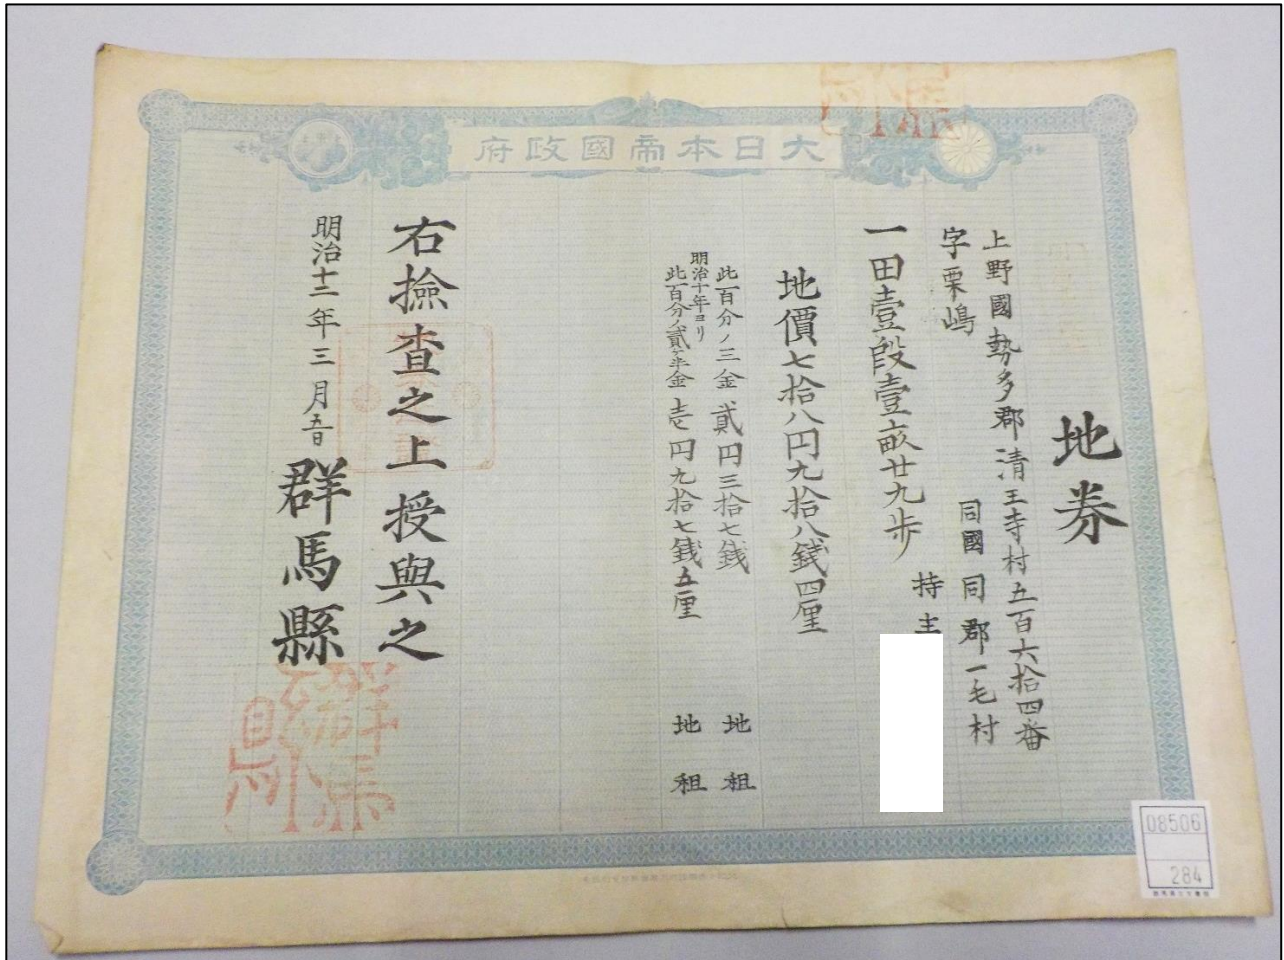 大日本帝國政府
地券
上野國勢多郡清王寺村五百六拾四番
字栗嶋
同國同郡一毛村
持主
一田壹段壹畝廿九歩
地價七拾八円九拾八錢四厘
此百分ノ三金貳円三拾七錢 地租
明治十年ヨリ
此百分ノ貳ヶ半金壱円九拾七錢五厘 地租
右撿査之上授與之
明治十二年三月五日
群馬縣
08506
284